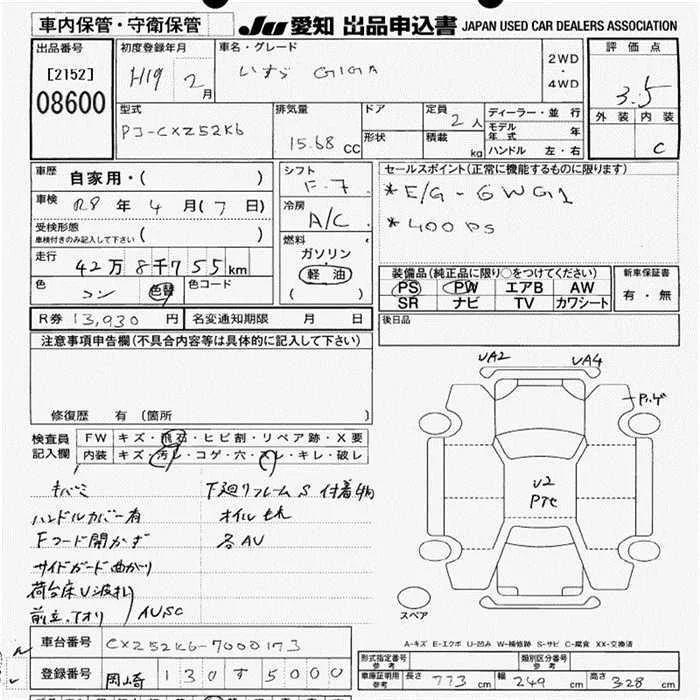 車内保管・守衛保管
JU 愛知 出品申込書 JAPAN USED CAR DEALERS ASSOCIATION
出品番号
[2152]
08600
初度登録年月
H19 2月
車名・グレード
いすゞ GIGA
2WD
・
4WD
評価点
3.5
外装 内装
C
型式
PJ-CXZ52K6
排気量
15.68 CC
ドア
形状
定員
2人
積載
kg
ディーラー・並行
モデル年式 年
ハンドル 左・右
車歴
自家用・( )
車検
R8年 4月(7日)
受検形態
車検付きのみ記入して下さい ( )
走行
42万8千755km
色
コン 色替
色コード
シフト
F.7
冷房
A/C
燃料
ガソリン
軽油
( )
セールスポイント(正常に機能するものに限ります)
*E/G-6WG1
*400PS
装備品(純正品に限り○をつけてください)
PS PW エアB AW
SR ナビ TV カワシート
新車保証書
有・無
後日品
R券 13,930円
名変通知期限 月 日
注意事項申告欄(不具合内容等は具体的に記入して下さい)
修復歴 有(箇所 )
検査員記入欄
FW キズ・飛石・ヒビ割・リペア跡・X要
内装 キズ・汚レ・コゲ・穴・スレ・キレ・破レ
キバミ
下廻りフレームS付着物
ハンドルカバー有
オイルもれ
Fコード開かず
各AU
サイドガード曲がり
荷台床U波打り
前立、アオリ AU,SC
UA2 UA4
U2
スペア
A-キズ E-エクボ U-凹み W-補修跡 S-サビ C-腐食 XX-交換済
車台番号
CXZ52K6-7000173
登録番号
岡崎 130 す 5000
形式指定番号
参考
類別区分番号
参考
車庫証明用
参考
長さ 773 cm
幅 249 cm
高さ 328 cm